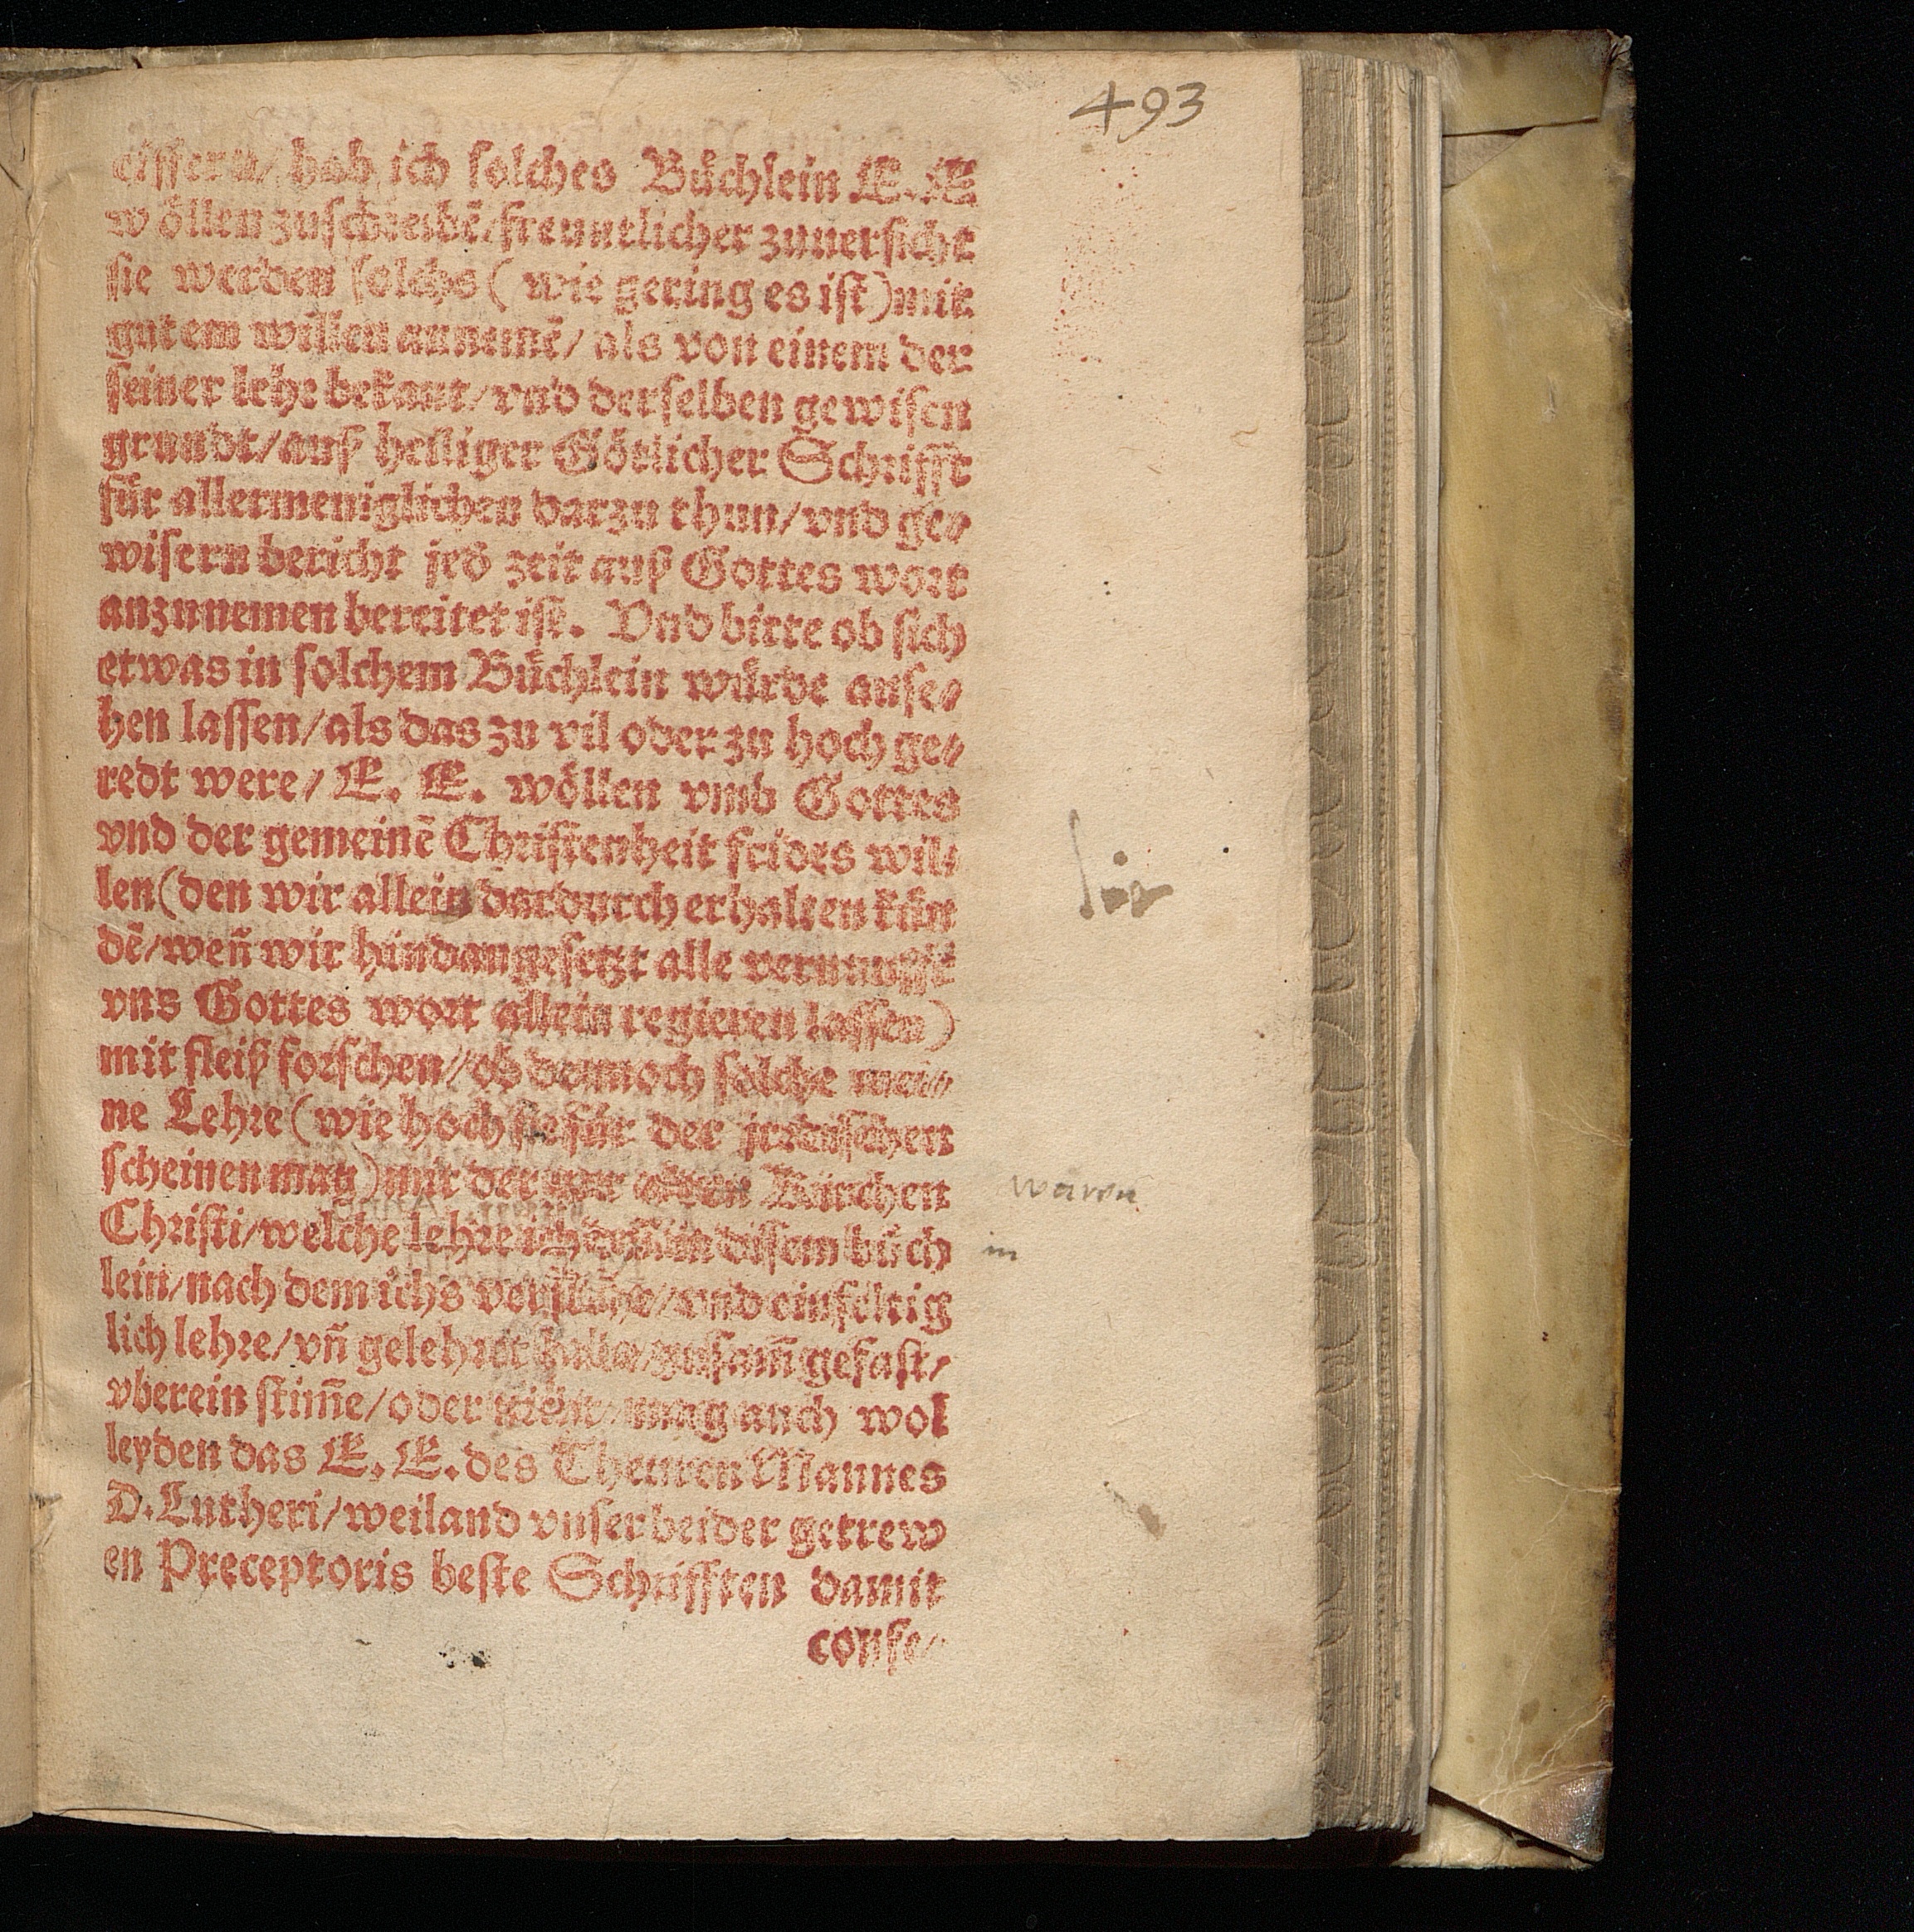 493
eiffern/ hab ich solches Bůchlein E. E
wöllen zuschreibē/freuntlicher zuuersicht
sie werden solchs (wie gering es ist) mit
gutem willen annemē/ als von einem der
seiner lehr bekant/vnd derselben gewisen
grundt/auß heiliger Götlicher Schrifft
für allermeniglichen darzu thun/vnd ge⸗
wisern bericht jed̄ zeit auß Gottes wort
anzunemen bereitet ist. Vnd bitte ob sich
etwas in solchem Bůchlein wůrde anse⸗
hen lassen/als das zu vil oder zu hoch ge⸗
redt were/ E. E. wöllen vmb Gottes
vnd der gemeinē Christenheit frides wil⸗
len (den wir allein dardurch erhalten kün
dē/weñ wir hindangesetzt alle vernunfft
vns Gottes wort allein regieren lassen)
mit fleiß forschen/ob dennoch solche mei⸗
ne Lehre (wie hoch sie für der jrrdischen
scheinen mag) mit der alten Kirchen
Christi/welche lehre ich in disem bůch
lein/nach dem ichs verstehe/vnd einfeltig
lich lehre/vñ gelehret habe/zusam̄ gefast/
vberein stim̄e/oder nicht/mag auch wol
leyden das E. E. des Theuren Mannes
D. Lutheri/weiland vnser beider getrew
en Preceptoris beste Schrifften damit
confe⸗
waren
in